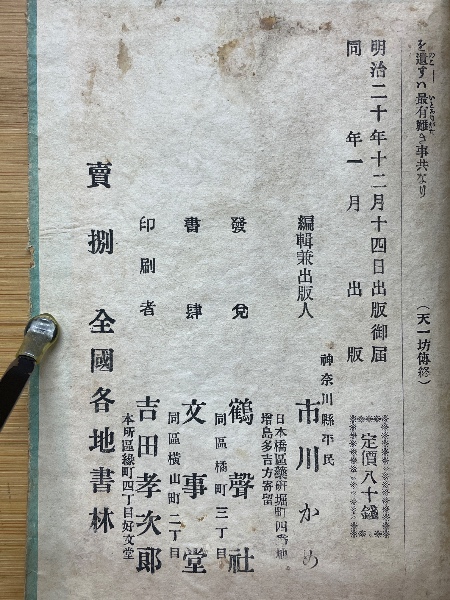 を遺すハ最有難き事共なり
（天一坊傳終）
明治二十年十二月十四日出版御届
同年一月出版
定價八十錢
神奈川縣平民
編輯兼出版人 市川かめ
日本橋區藥研堀町四番地
増島多吉方寄留
發兌 鶴聲社
同區橘町三丁目
書肆 文事堂
同區橫山町二丁目
印刷者 吉田孝次郎
本所區緑町四丁目好文堂
賣捌 全國各地書林